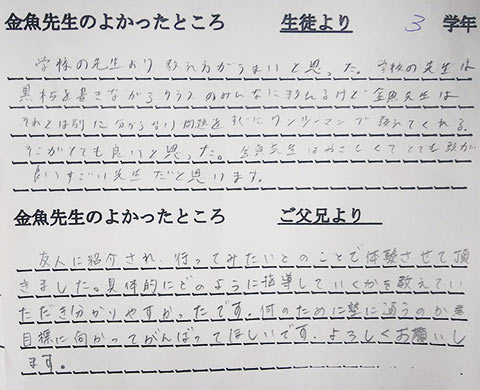 金魚先生のよかったところ 生徒より 3 学年
学校の先生より教え方がうまいと思った。学校の先生は
黒板を書きながらクラスのみんなに教えるけど金魚先生は
それとは別に分からない問題をすぐにワンツーマンで教えてくれる。
そこがとても良いと思った。金魚先生はやさしくてとても頭が
良いすごい先生だと思います。
金魚先生のよかったところ ご父兄より
友人に紹介され、行ってみたいとのことで体験させて頂
きました。具体的にどのように指導していくかを教えてい
ただき分かりやすかったです。何のために塾に通うのか
目標に向かってがんばってほしいです。よろしくお願いし
ます。